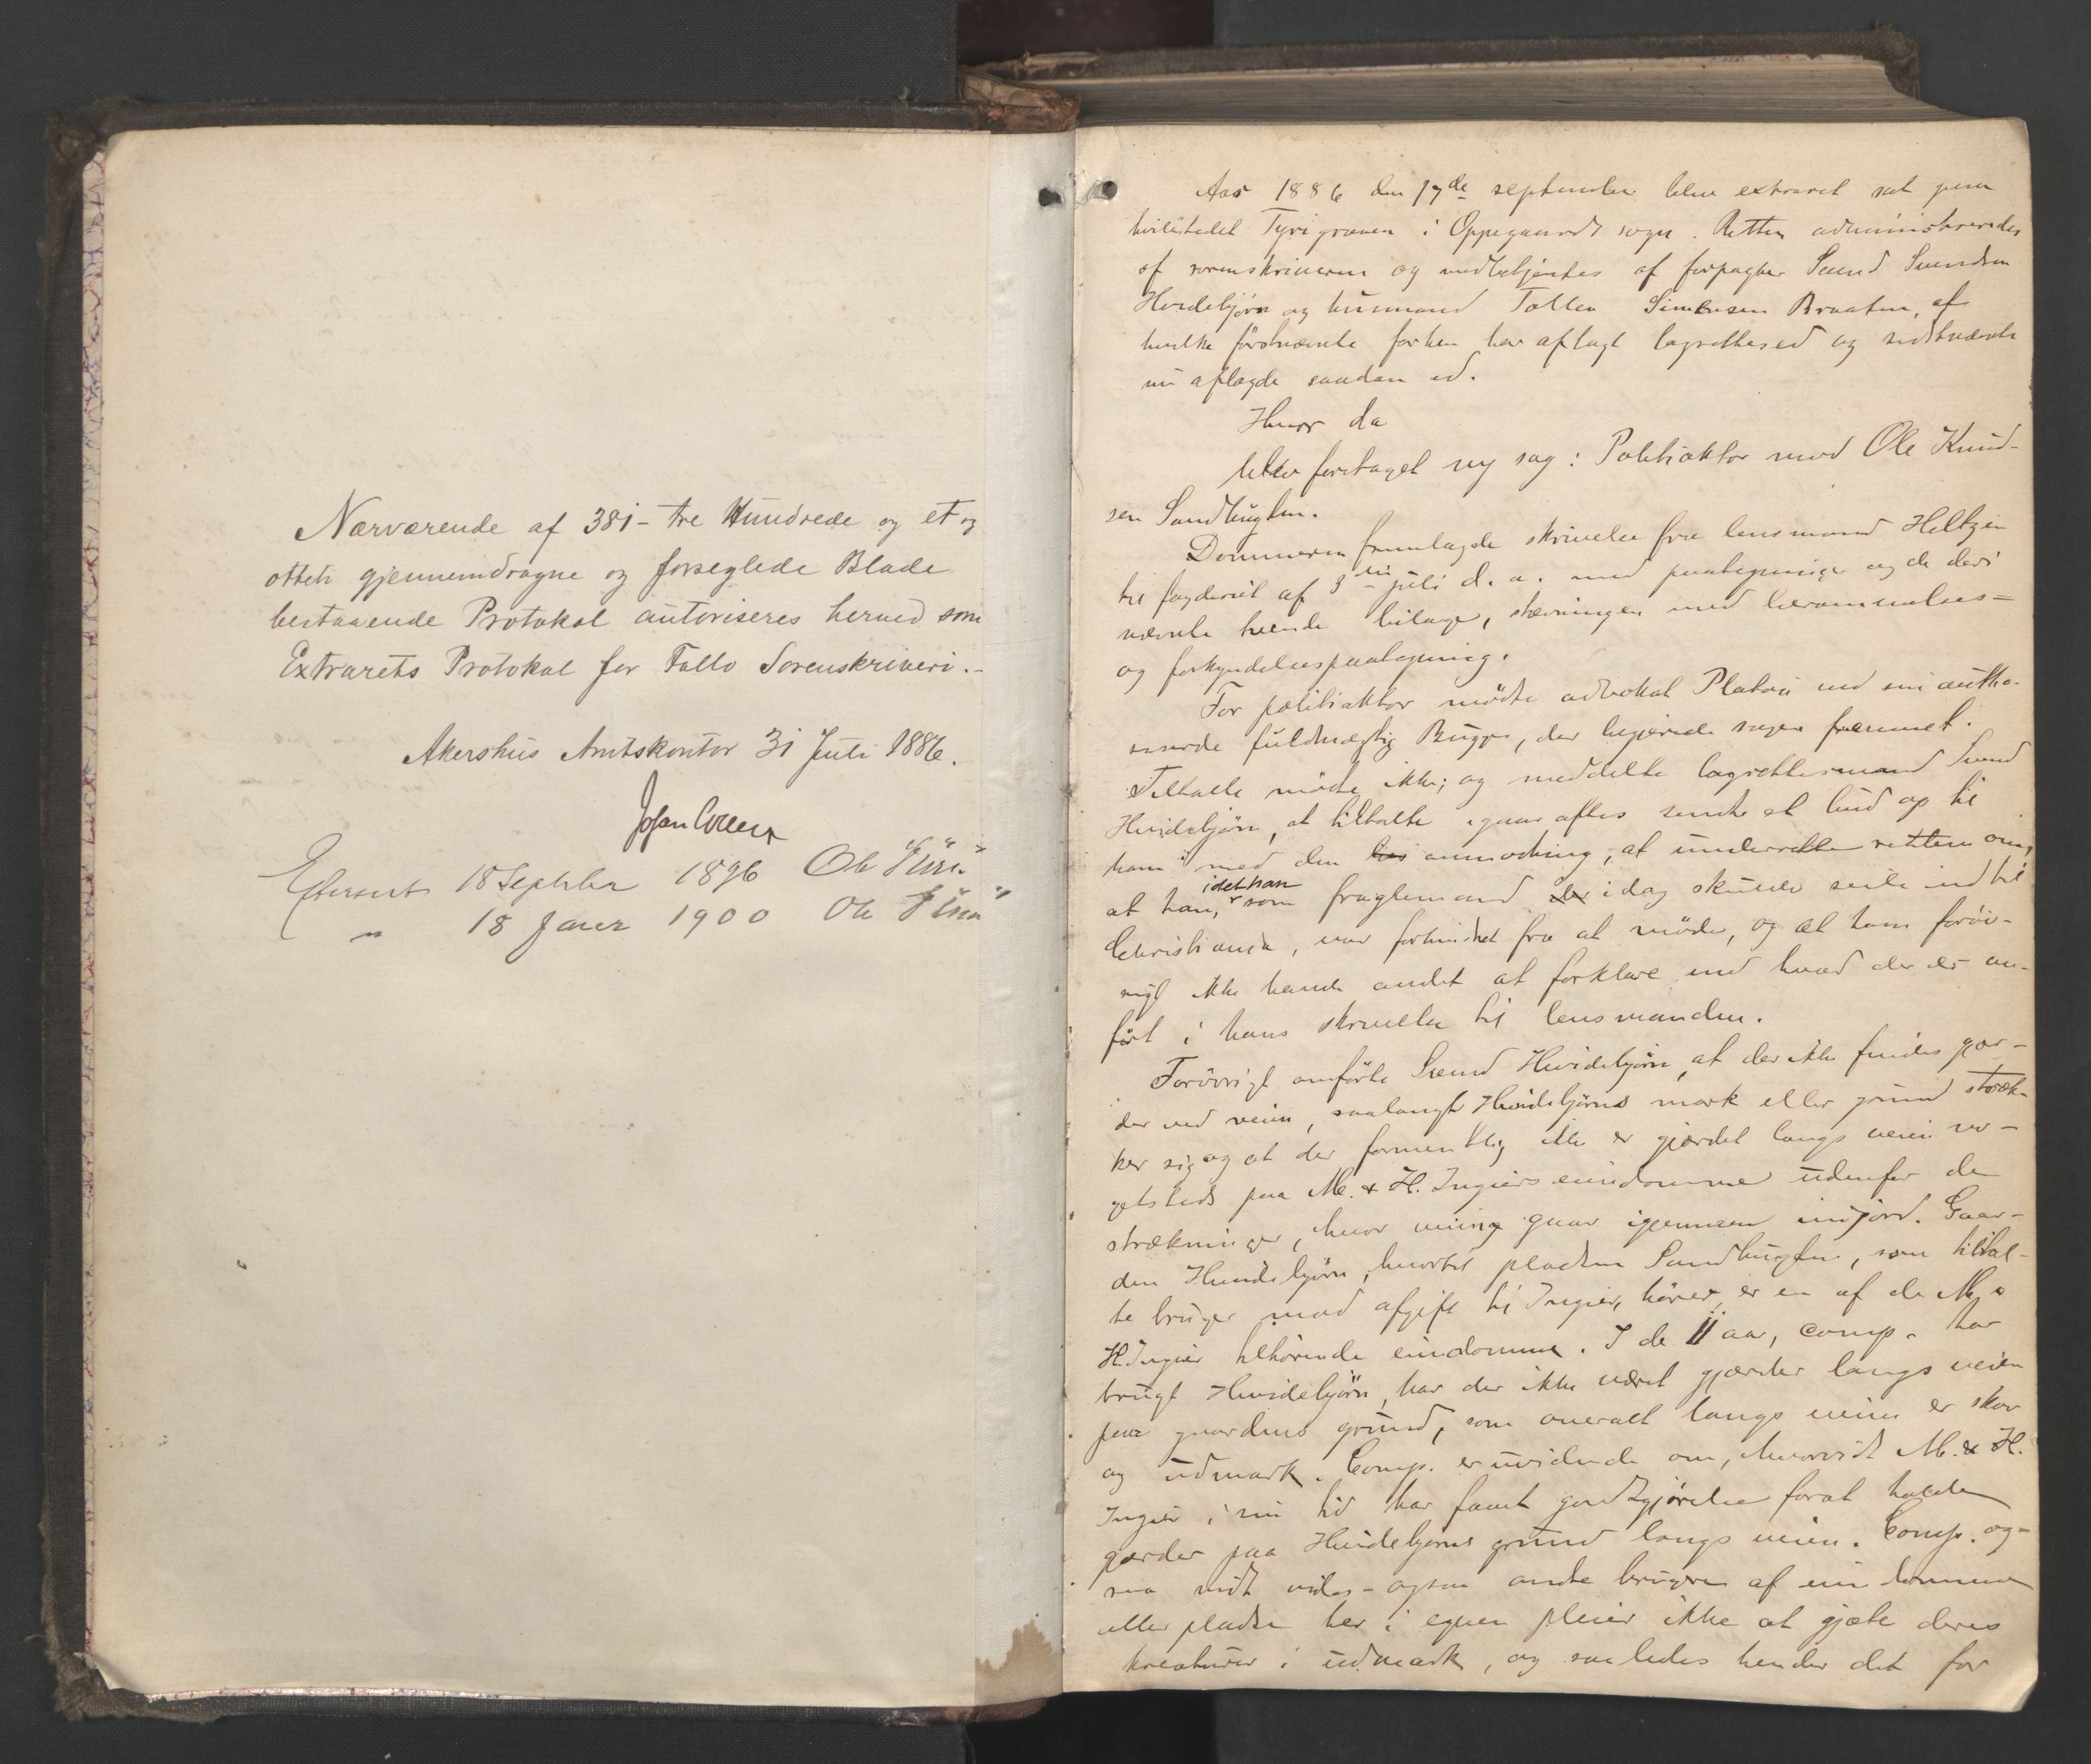 Nærværende af 381 - tre Hundrede og et og
otteti gjennemdragne og forseglede Blade
bestaaende Protokol autoriseres herved som
Extrarets Protokol for Follo Sorenskriveri.-
Akershus Amtskontor 31 Juli 1886.
Johan Collett
Efterseet 18 September 1896 Ole
" 18 Januar 1900 Ole
Aar 1886 den 17de september blev extraret sat paa
hvilestedet Tyrigraven i Oppegaard sogn. Retten administreredes
af sorenskriveren og medbetjentes af forpagter Svend Svendsen
Hvidebjörn og husmand Tollev Simensen Braaten, af
hvilke förstnævnte forhen har aflagt lagrettesed og sidstnævnte
nu aflagde saadan ed.
Hvor da
blev foretaget ny sag: Politiaktor mod Ole Knud-
sen Sandbugten.
Dommeren fremlagde skrivelse fra lensmand Heltzen
til fogderiet af 3die juli d. a. med paategninger og de deri
nævnte tvende bilage, stævningen med berammelses-
og forkyndelsespaategning.
For politiaktor mödte advokat Platou ved sin autho-
riserede fuldmægtig Bugge, der begjærede sagen fremmet.
Tiltalte mödte ikke; og meddelte lagrettesmand Svend
Hvidebjörn, at tiltalte igaar aftes sendte et bud op til
ham med den anmodning, at underrette retten om,
at han, idet han som fragtemand idag skulde seile ind til
Christiania, var forhindret fra at möde, og at han foröv-
rigt ikke havde andet at forklare end hvad der er an-
fört i hans skrivelse til lensmanden.
Forövrigt anförte Svend Hvidebjörn, at der ikke findes gjær-
der ved veien, saalangt Hvidebjörns mark eller grund stræk-
ker sig og at der formentlig ikke er gjærdet langs veien no-
getsteds paa M. & H. Ingiers eiendomme udenfor de
strækninger, hvor veien gaar igjennem indjord. Gaar-
den Hvidebjörn, hvortil pladsen Sandbugten, som tiltal-
te bruger mod afgift til Ingier, hörer, er en af de M. &
H. Ingier tilhörende eiendomme. I de 11 aar, comp. har
brugt Hvidebjörn, har der ikke været gjærder langs veien
paa gaardens grund, som overalt langs veien er skov
og udmark. Comp. er uvidende om, hvorvidt M. & H.
Ingier i sin tid har faaet godtgjörelse forat holde
gjærder paa Hvidebjörns grund langs veien. Comp. og -
saa vidt vides - ogsaa andre brugere af eiendomme
eller pladse her i egnen pleier ikke at gjæte deres
kreaturer i udmark, og saaledes hender det for